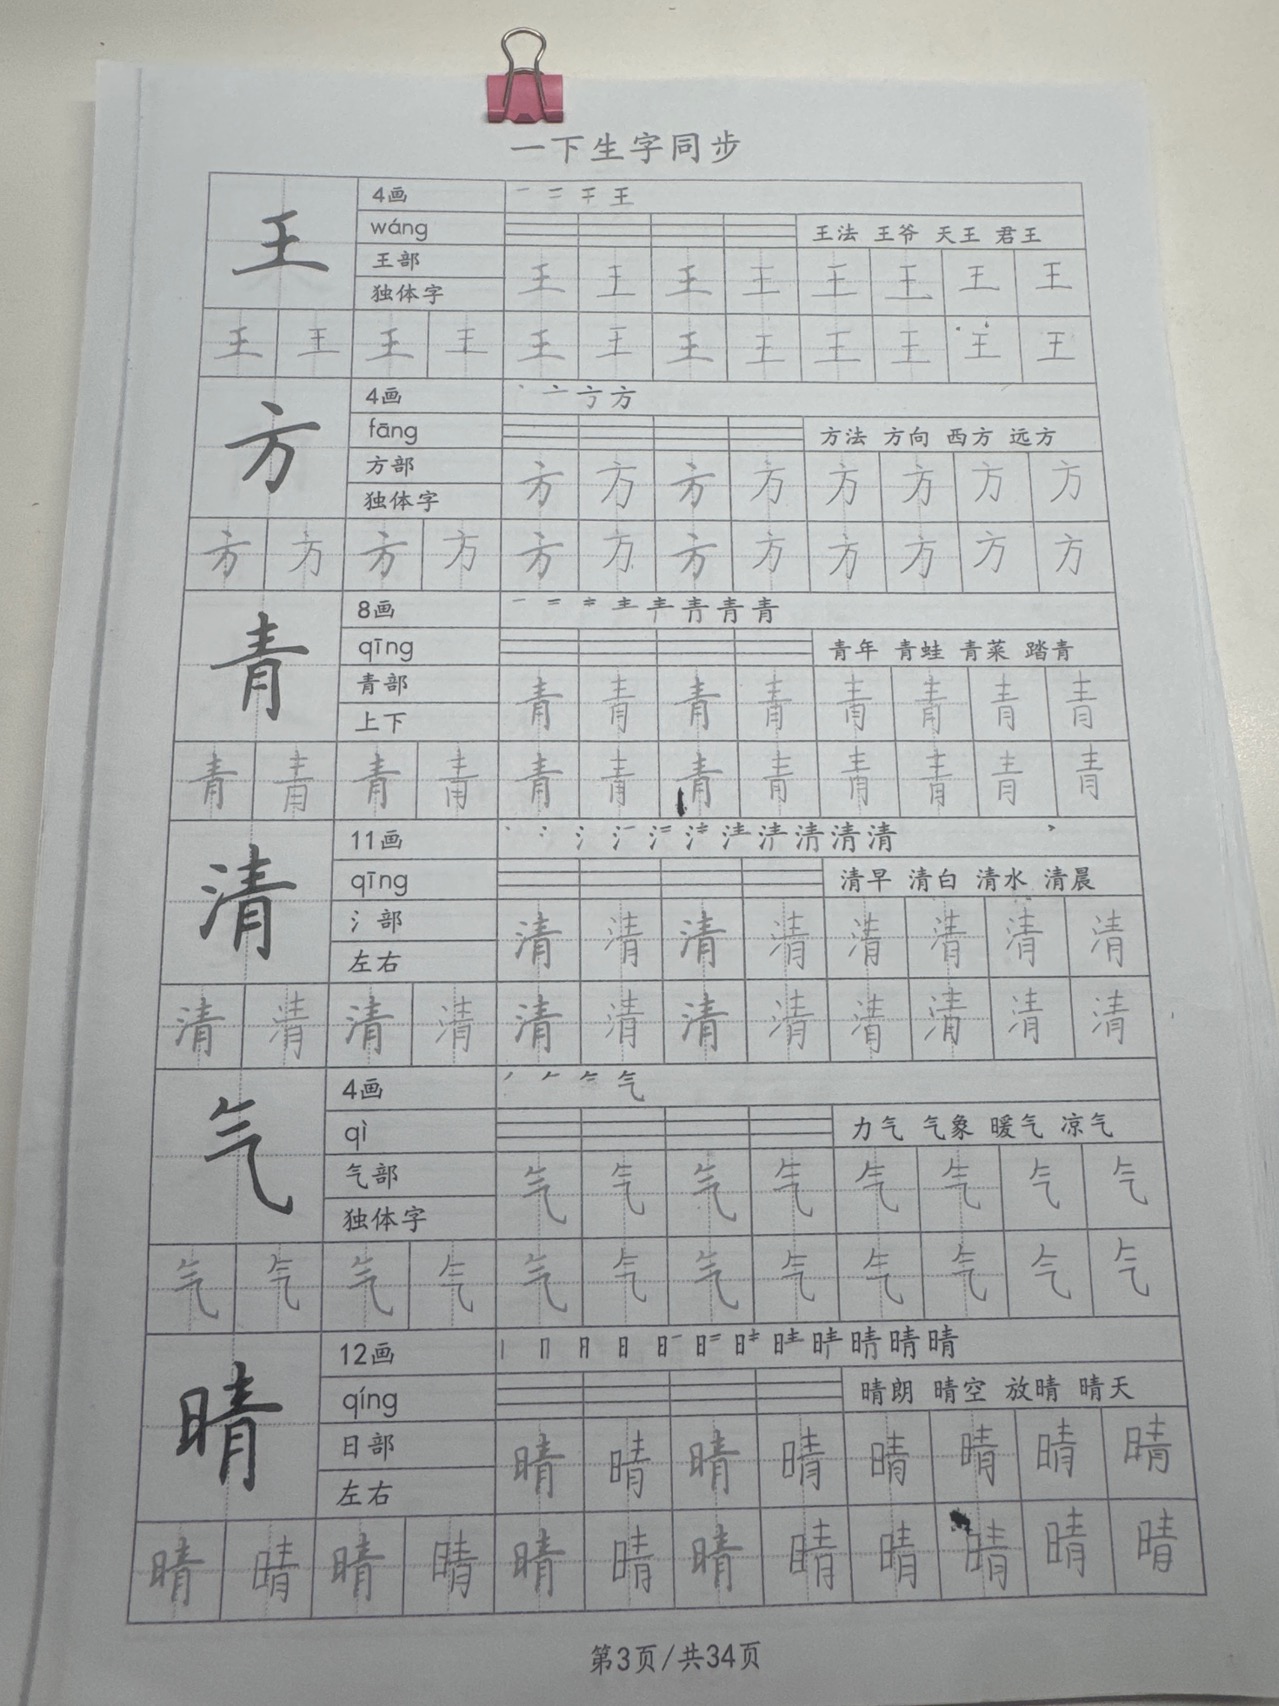 一下生字同步
王
4画
一 二 干 王
wáng
王法 王爷 天王 君王
王部
独体字
王 王 王 王 王 王 王 王
王 王 王 王 王 王 王 王 王 王 王 王
方
4画
丶 亠 亐 方
fāng
方法 方向 西方 远方
方部
独体字
方 方 方 方 方 方 方 方
方 方 方 方 方 方 方 方 方 方 方 方
青
8画
青 青 青
qīng
青年 青蛙 青菜 踏青
青部
上下
青 青 青 青 青 青 青 青
青 青 青 青 青 青 青 青 青 青 青 青
清
11画
清 清 清
qīng
清早 清白 清水 清晨
氵部
左右
清 清 清 清 清 清 清 清
清 清 清 清 清 清 清 清 清 清 清 清
气
4画
丿 𠂉 气
qì
力气 气象 暖气 凉气
气部
独体字
气 气 气 气 气 气 气 气
气 气 气 气 气 气 气 气 气 气 气 气
晴
12画
丨 冂 月 日 晴 晴 晴
qíng
晴朗 晴空 放晴 晴天
日部
左右
晴 晴 晴 晴 晴 晴 晴 晴
晴 晴 晴 晴 晴 晴 晴 晴 晴 晴 晴 晴
第3页/共34页